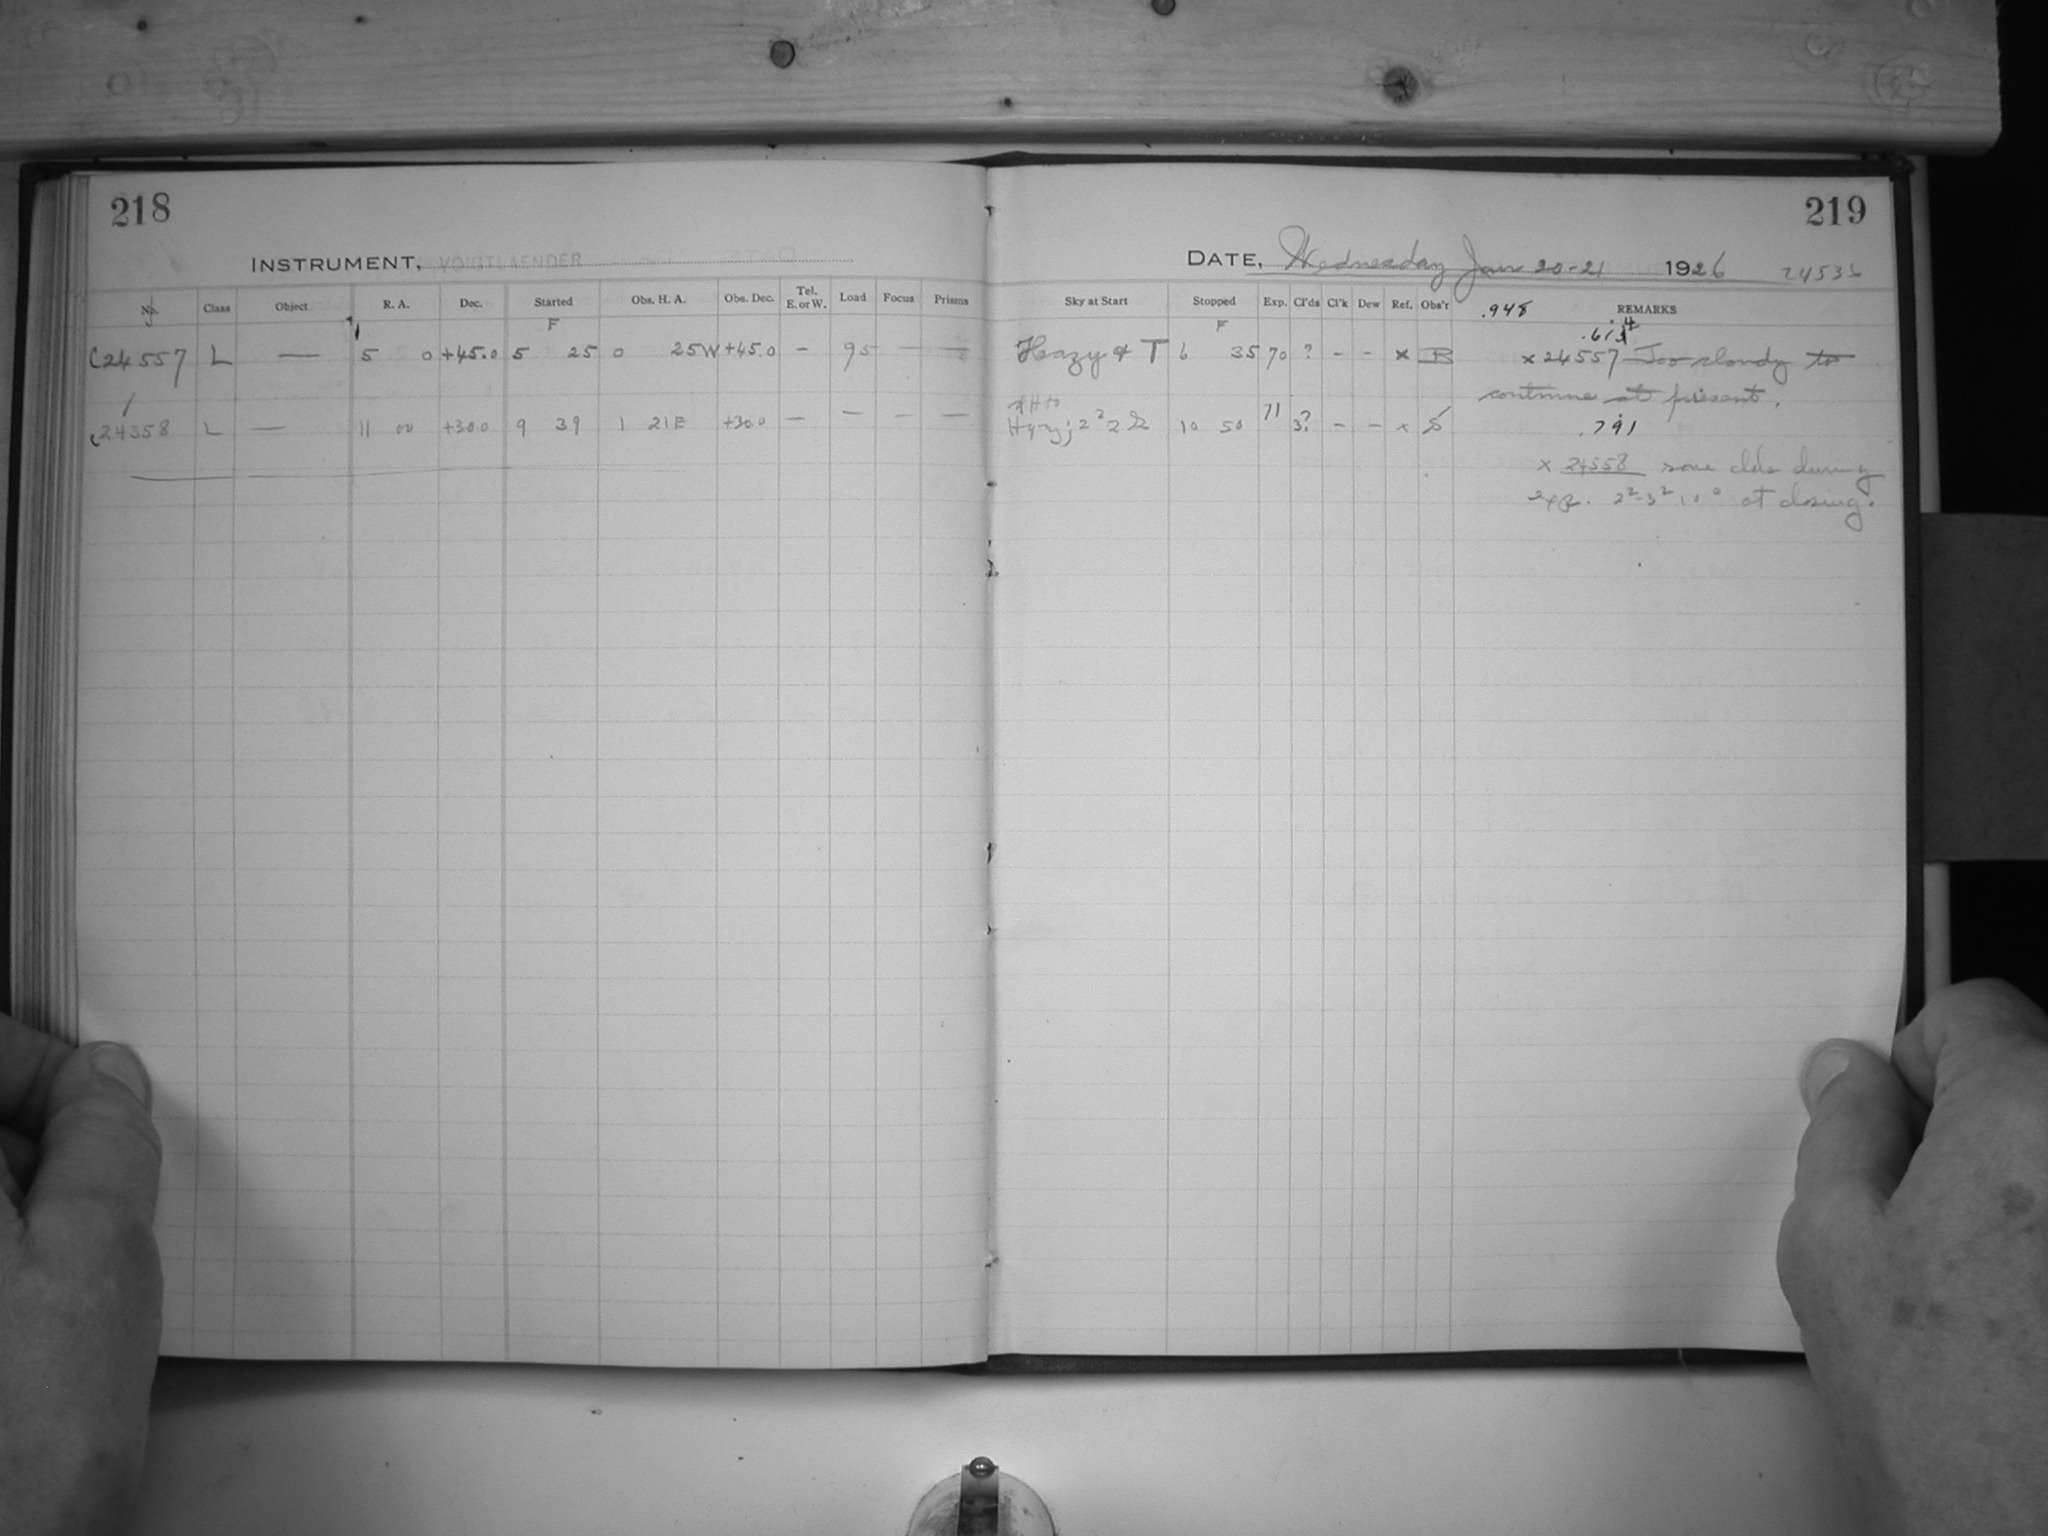 218
219
INSTRUMENT, VOIGTLAENDER
DATE, Wednesday Jan 20-21 1926 24536
No. Class Object R. A. Dec. Started Obs. H. A. Obs. Dec. Tel. E. or W. Load Focus Prisms
Sky at Start Stopped Exp. Cl'ds Cl'k Dew Ref. Obs'r .948 REMARKS
F
F
24557 L — 5 0 +45.0 5 25 0 25W +45.0 - 95 — —
Hazy & T 6 35 70 ? - - x B x 24557 Too cloudy to
continue at present.
24558 L — 11 00 +30.0 9 39 1 21E +30.0 — — — —
10 50 71 3? - - x S .791
x 24558 some clds during
exp. 2²-3² 10⁰ at closing.